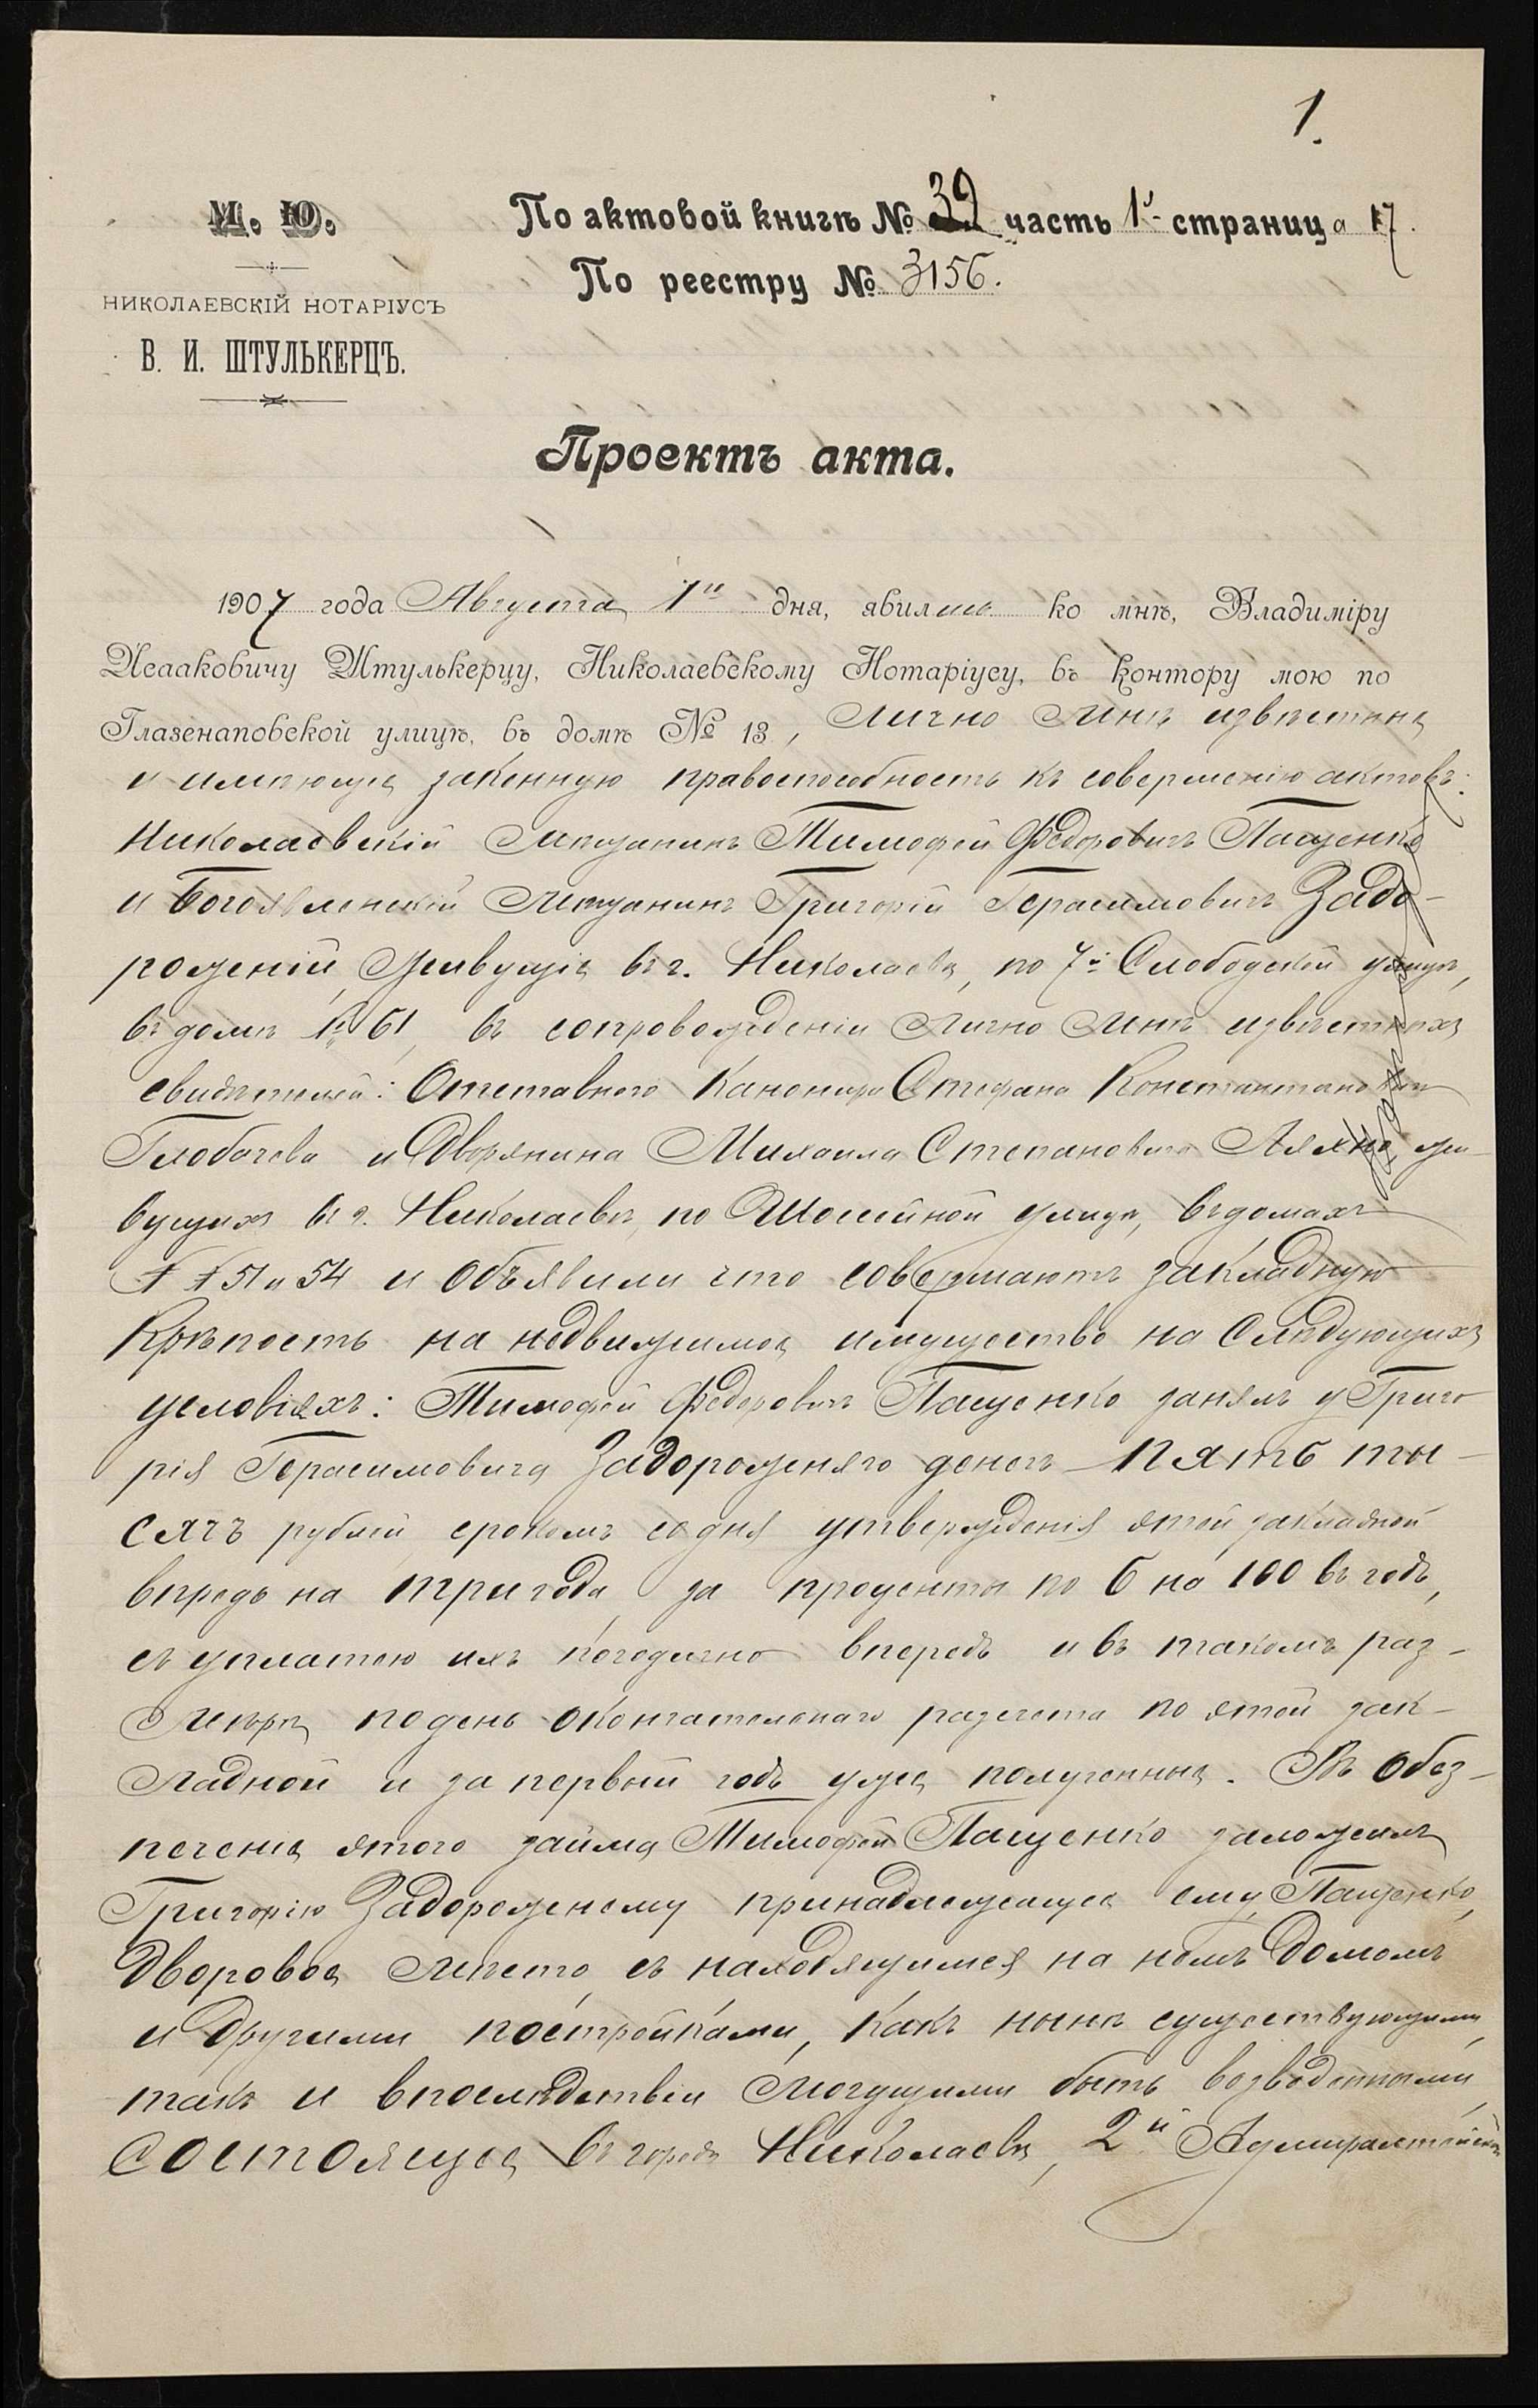 1.
М. Ю.
НИКОЛАЕВСКІЙ НОТАРІУСЪ
В. И. ШТУЛЬКЕРЦЪ.
По актовой книгѣ № 39 часть 1й страница 17.
По реестру № 3156.
Проектъ акта.
1907 года Августа 1го дня, явились ко мнѣ, Владиміру
Исааковичу Штулькерцу, Николаевскому Нотаріусу, въ контору мою по
Глазенаповской улицѣ, въ домѣ № 13, лично мнѣ извѣстные
и имѣющіе законную правоспособность къ совершенію актовъ:
Николаевскій мѣщанинъ Тимофей Федоровичъ Пащенко
и Богоявленскій мѣщанинъ Григорій Герасимовичъ Задо-
рожній, живущіе въ г. Николаевѣ, по 7й Слободской улицѣ,
въ домѣ № 61, въ сопровожденіи лично мнѣ извѣстныхъ
свидѣтелей: Отставного Канонира Стефана Константиновича
Глобачева и Дворянина Михаила Степановича Ляхно жи-
вущихъ въ г. Николаевѣ, по Шоссейной улицѣ, въ домахъ
№ № 51 и 54 и объявили что совершаютъ закладную
крѣпость на недвижимое имущество на слѣдующихъ
условіяхъ: Тимофей Федоровичъ Пащенко занялъ у Григо
рія Герасимовича Задорожняго денегъ пять ты-
сячъ рублей срокомъ со дня утвержденія этой закладной
впредь на три года, за проценты по 6 на 100 въ годъ,
съ уплатою ихъ погодично впередъ и въ такомъ раз-
мѣрѣ по день окончательнаго разсчета по этой зак-
ладной и за первый годъ уже полученные. Въ обез-
печеніе этого займа Тимофей Пащенко заложилъ
Григорію Задорожнему принадлежащее ему, Пащенко,
дворовое мѣсто, съ находящимся на немъ домомъ
и другими постройками, какъ нынѣ существующими,
такъ и впослѣдствіи могущими быть возведенными,
состоящее въ городѣ Николаевѣ, 2й Адмиралтейской